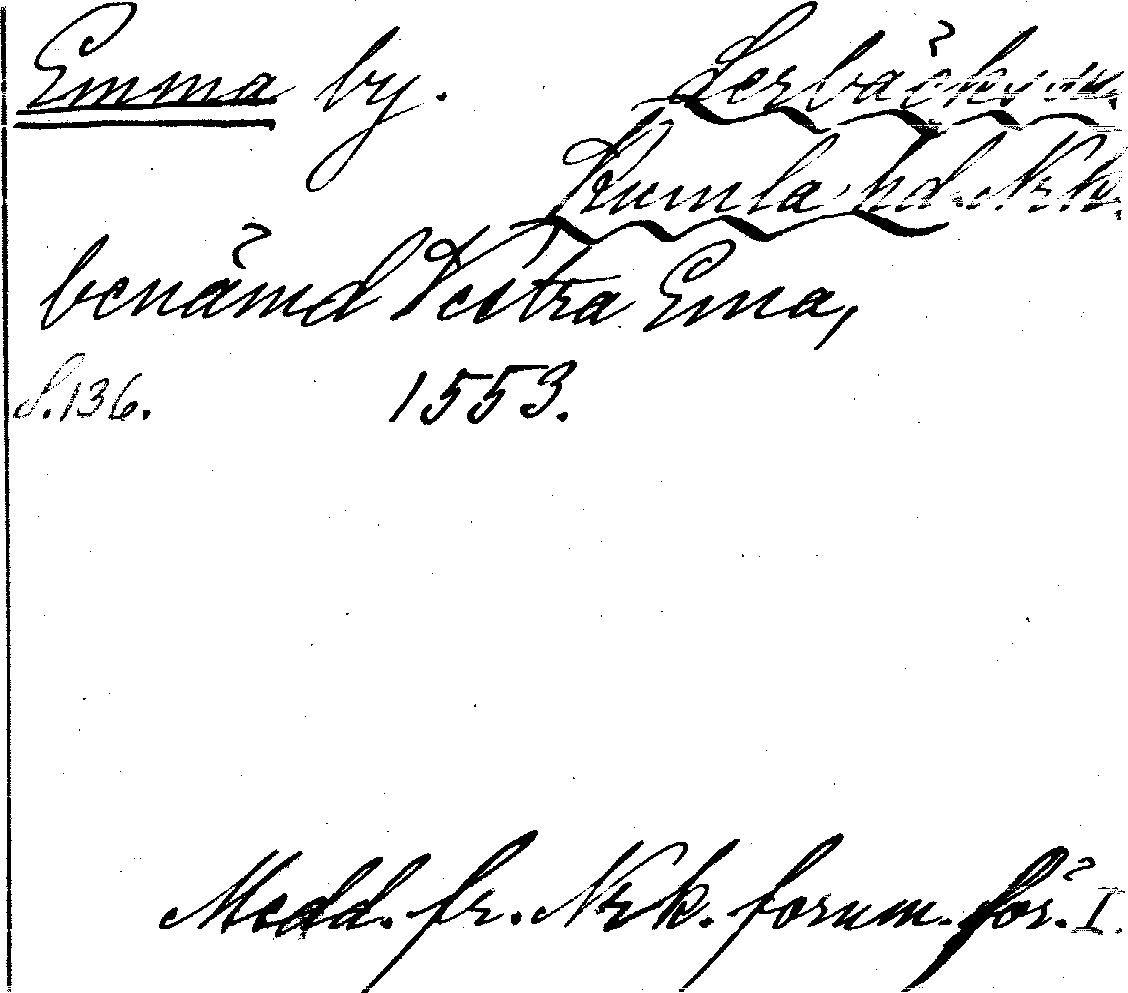 Emma by. Lerbäcks sn.
Kumla hd. Nrk.
benämd Vestra Ema,
S. 136. 1553.
Medd. fr. Nrk. fornm. för. I.